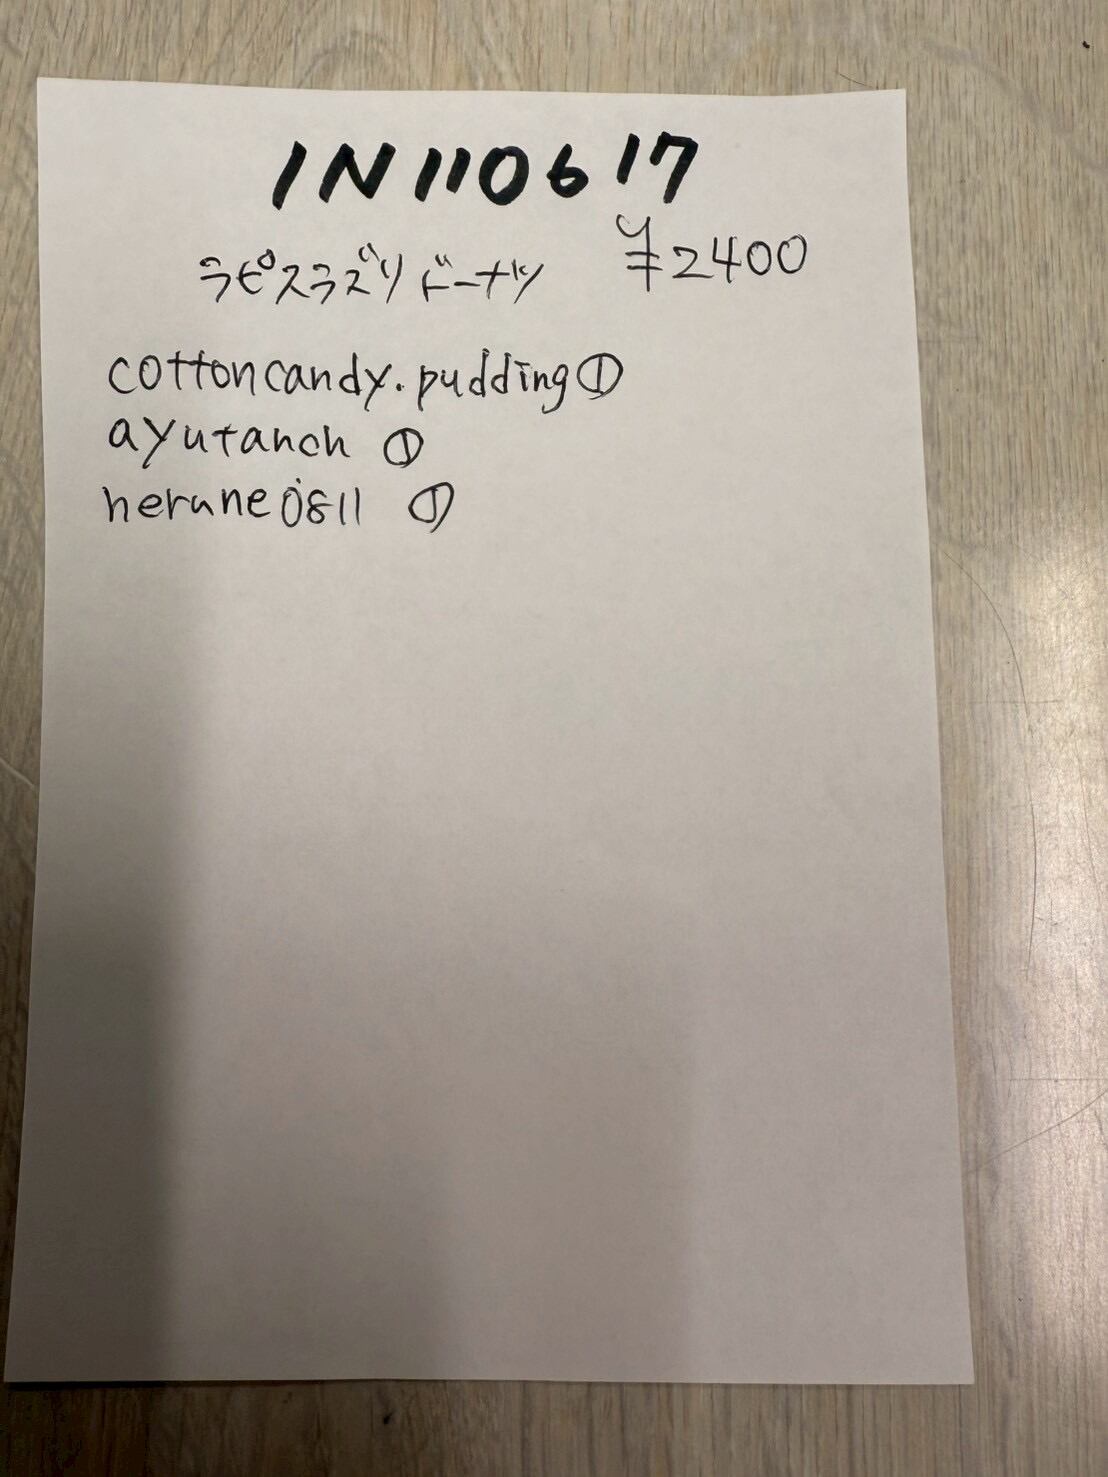 IN110617
ラピスラズリドーナツ ¥2400
cottoncandy.pudding①
ayutanch ①
herune0811 ①